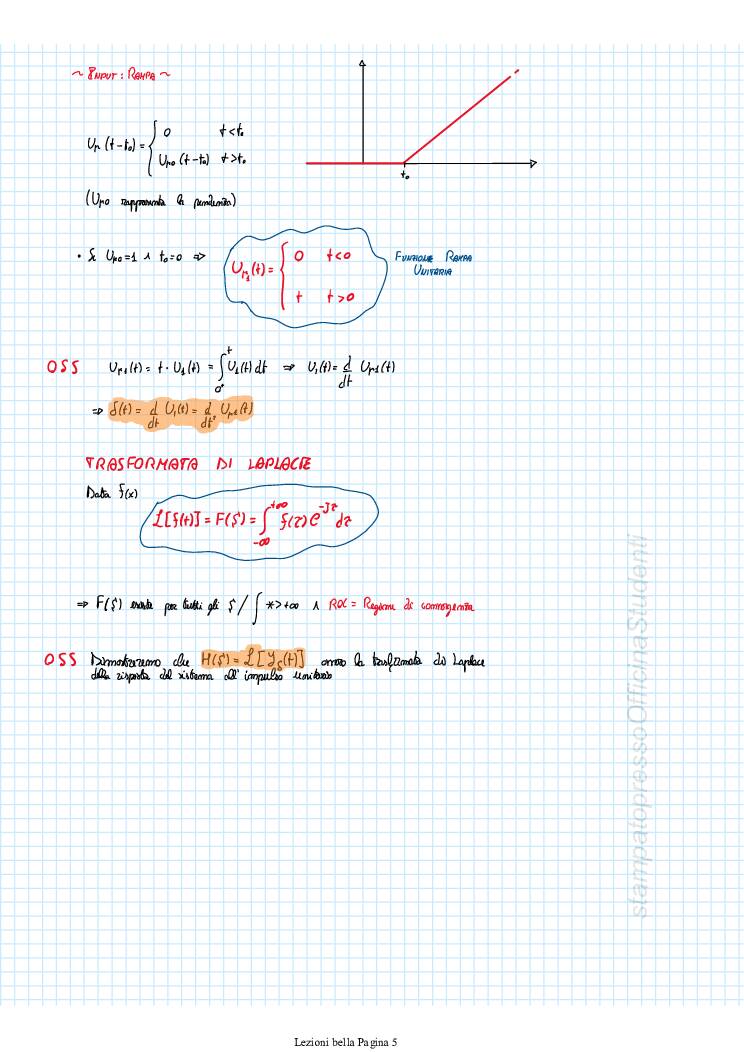 ~ INPUT: RAMPA ~
Ur (t-t₀) = { 0 t<t₀
Uro (t-t₀) t>t₀
t₀
(Uro rappresenta la pendenza)
• Se Uro=1 ∧ t₀=0 ⇒ Ur₁(t) = { 0 t<0
t t>0
FUNZIONE RAMPA
UNITARIA
OSS Ur1(t) = t · U1(t) = ∫₀⁺ᵗ U1(t) dt ⇒ U1(t) = d/dt Ur1(t)
⇒ δ(t) = d/dt U1(t) = d/dt² Ur1(t)
TRASFORMATA DI LAPLACE
Data f(x)
L[f(t)] = F(S) = ∫₋∞⁺∞ f(τ) e^-Sτ dτ
⇒ F(S) esiste per tutti gli S / ∫ *> +∞ ∧ ROC = Regione di convergenza
OSS Dimostreremo che H(S) = L[yδ(t)] ovvero la trasformata di Laplace
della risposta del sistema all' impulso unitario
stampatopressoOfficinaStudenti
Lezioni bella Pagina 5